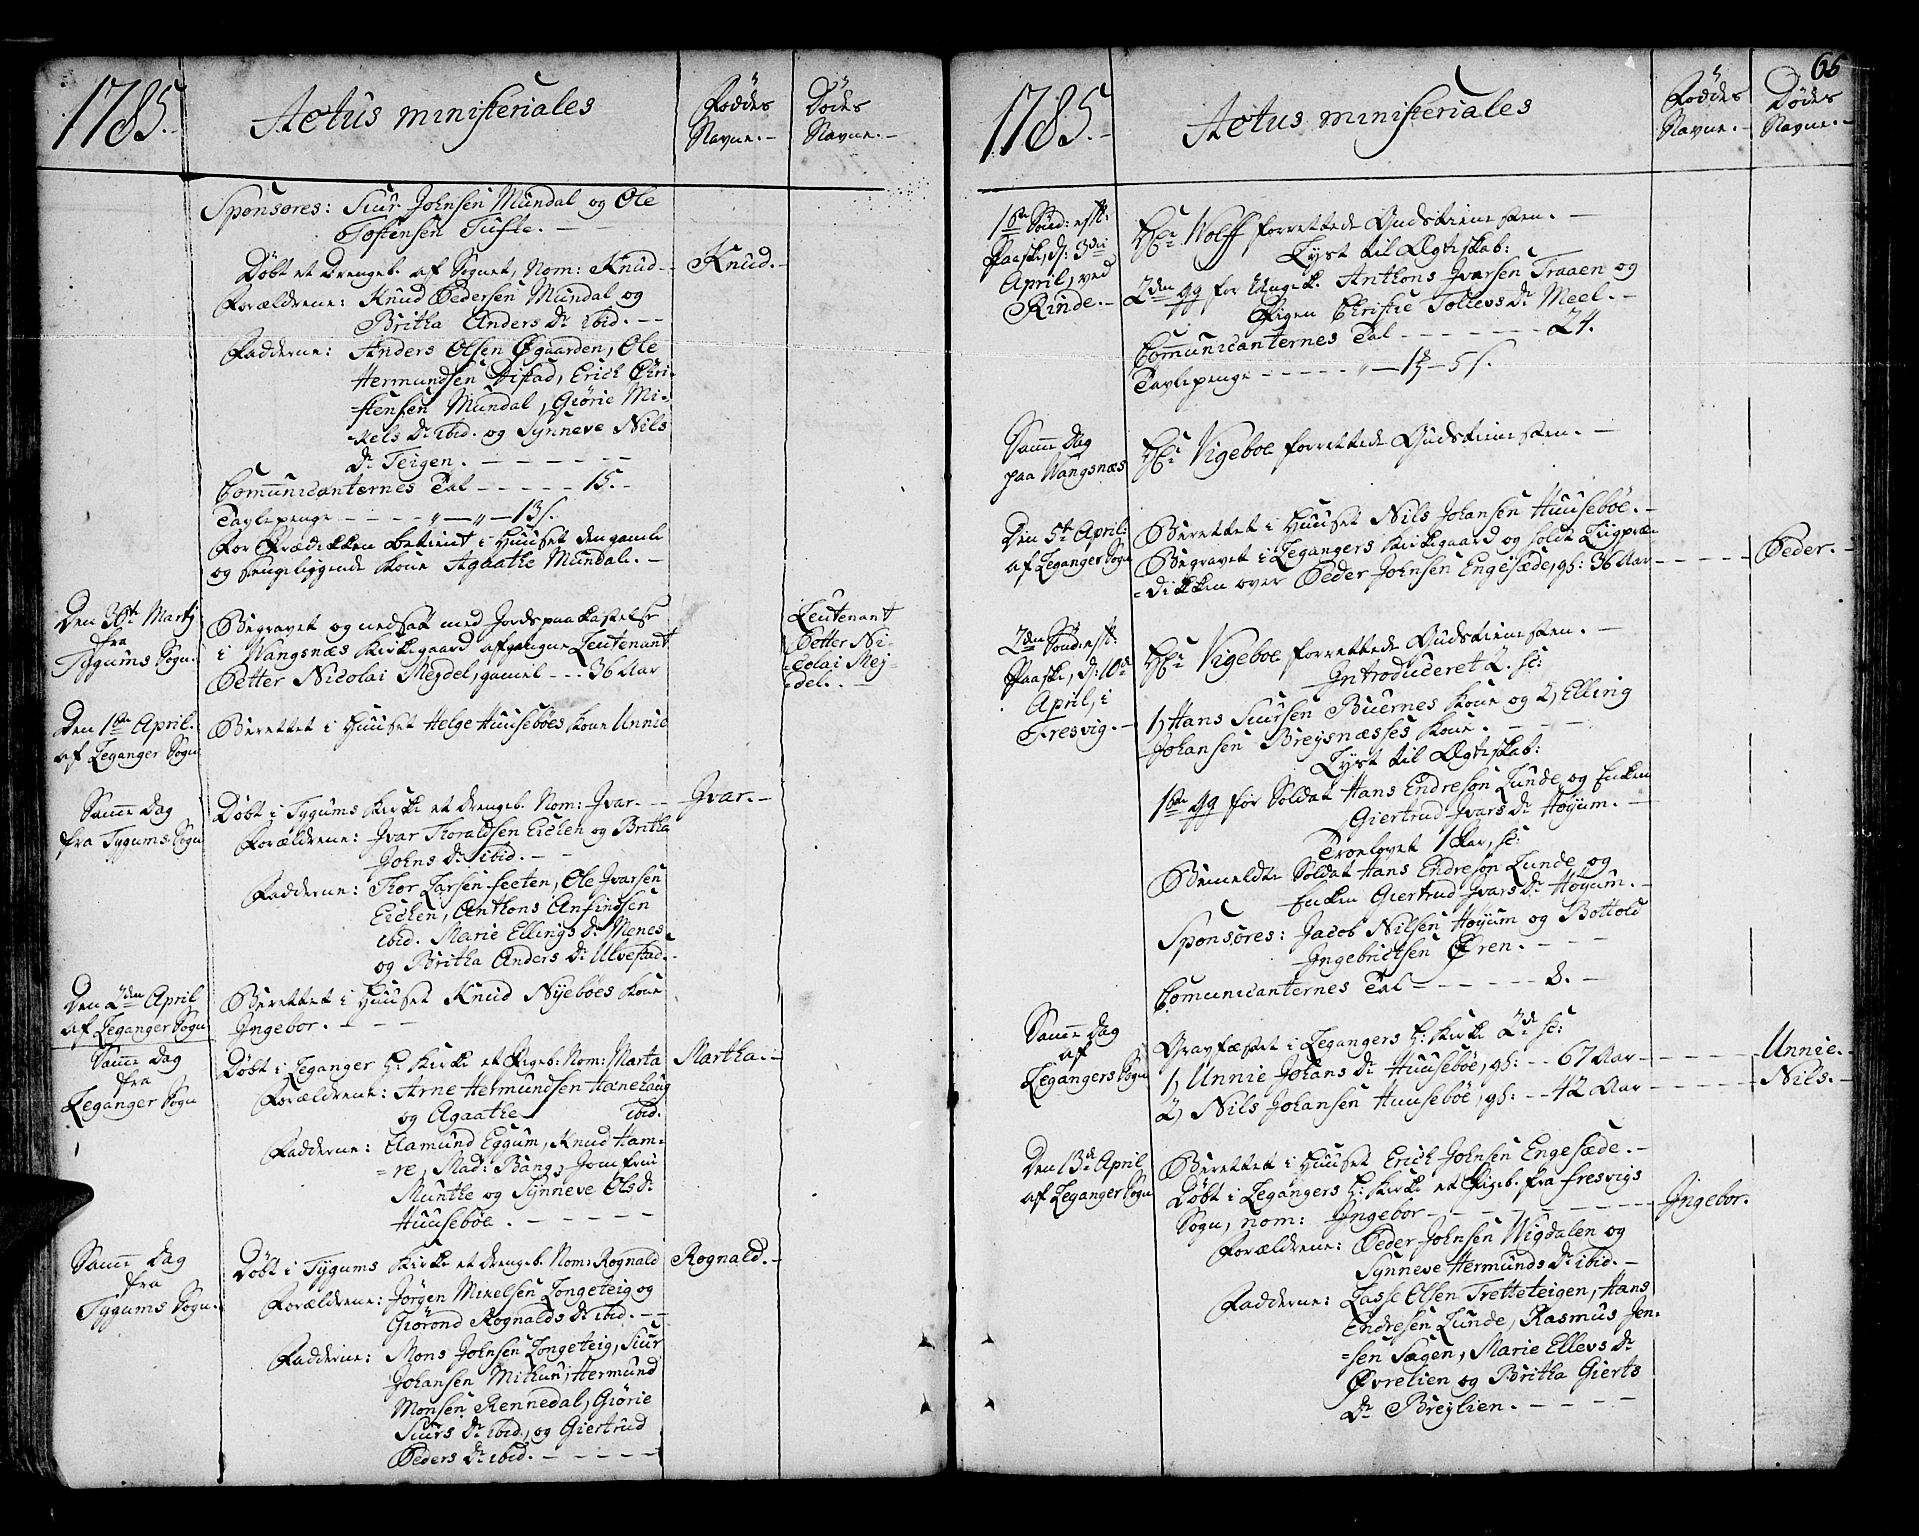 1785.
Actus ministeriales
Føddes
Navne.
Dødes
Navne.
Sponsores: Siur Johnsen Mundal og Ole
Tostensen Tufte.
Døbt et Drengeb. af Sognet, Nom: Knud
Knud.
Forældrene: Knud Pedersen Mundal og
Britha Anders Dr ibid.
Fadderne: Anders Olsen Øgaarden, Ole
Hermundsen Distad, Erich Chri-
stensen Mundal, Giørie Mi-
kels Dr ibid. og Synneve Nils
Dr Teigen.
Comunicanternes Tal - - - 15.
Tavlepenge - - - " - " - 13 s.
For Prædikken betient i Huuset den gamle
og sengeliggende kone Agaathe Mundal.
Den 30te Martj
fra
Tygums Sogn.
Begravet og nedsatt med Jords paakastelse
i Wangsnæs Kirkegaard afgangne Leutenant
Petter Nicolai Mejdel, gamel - - - 36 Aar
Leutenant
Petter Ni-
colai Mej-
del.
Den 1ste April.
af Leganger Sogn
Berettet i Huuset Helge Huusebøes kone Unnie
Samme Dag
fra Tygums Sogn
Døbt i Tygums Kirke et Drengeb. Nom: Jvar.
Jvar.
Forældrene: Jvar Thoraldsen Eichen og Britha
Johns Dr ibid.
Fadderne: Thor Larsen Feeten, Ole Jvarsen
Eichen, Anthons Anfindsen
ibid. Marie Ellings Dr Menes
og Britha Anders Dr Ulvestad.
Den 2den April
af Leganger Sogn
Berettet i Huuset Knud Nyebøes kone
Ingebor.
Samme Dag
fra
Leganger Sogn
Døbt i Leganger H: Kirke et Pigeb: Nom: Marta
Martha.
Forældrene: Arne Hermundsen Hanehaug
og Agaathe ibid.
Fadderne: Aamund Eggum, Knud Ham-
re, Mad: Bang, Jomfrue
Munthe og Synneve Ols Dr
Huusebøe.
Samme Dag
fra
Tygums Sogn.
Døbt i Tygums Kirke et Drengeb. Nom: Rognald
Rognald.
Forældrene: Jørgen Mikelsen Longeteig og
Giørond Rognalds Dr ibid.
Fadderne: Mons Johnsen Longeteig, Siur
Johansen Mithun, Hermund
Monsen Rennedal, Giørie
Siurs Dr ibid. og Giertrud
Peders Dr ibid.
65
1785.
Actus ministeriales
Føddes
Navne.
Dødes
Navne.
1ste Sønd: eft:
Paaske, d: 3die
April, ved
Rinde.
Hr Wolff forrettede Gudstienesten.
Lyst til Ægteskab:
2den gg for Ungk. Anthons Jvarsen Traaen og
Pigen Christie Tollevs Dr Meel.
Comunicanternes Tal - - - 24.
Tavlepenge - - - 1 - 5 s.
Samme Dag
paa Wangsnæs
Hr Vigeboe forrettede Gudstienesten.
Den 5te April.
af Leganger Sogn
Berettet i Huuset Nils Johansen Huusebøe.
Begravet i Legangers Kirkegaard og holdt Liigpræ-
dikken over Peder Johnsen Engesæde, gl: 36 Aar
Peder.
2den Sønd: eft:
Paaske, d: 10de
April, i
Fresvig.
Hr Vigeboe forrettede Gudstienesten.
Introduceret 2. sc:
1) Hans Siursen Buernes kone og 2) Elling
Johansen Breysnæsses kone.
Lyst til Ægteskab:
1ste gg for Soldat Hans Endresøn Lunde og Enken
Giertrud Jvars Dr Høyum.
Troelovet 1 Par, sc:
Bemeldte Soldat Hans Endresøn Lunde og
Enken Giertrud Jvars Dr Høyum.
Sponsores: Jacob Nilsen Høyum og Bottold
Ingebrictsen Øren.
Comunicanternes Tal - - - 8.
Samme Dag
af
Legangers Sogn
Gravfæstet i Legangers H: Kirke 2de sc:
1) Unnie Johans Dr Huusebøe, gl: - - 67 Aar
Unnie.
2) Nils Johansen Huusebøe, gl: - - 42 Aar
Nils.
Den 13de April
af Leganger Sogn
Berettet i Huuset Erich Johnsen Engesæde.
Døbt i Legangers H: Kirke et Pigeb. fra Fresvigs
Sogn, nom: Ingebor
Ingebor.
Forældrene: Peder Johnsen Wigdalen og
Synneve Hermunds Dr ibid.
Fadderne: Lasse Olsen Tretteteigen, Hans
Endresen Lunde, Rasmus Jen-
sen Sagen, Marie Ellevs Dr
Øvrelien og Britha Gierts
Dr Breylien.